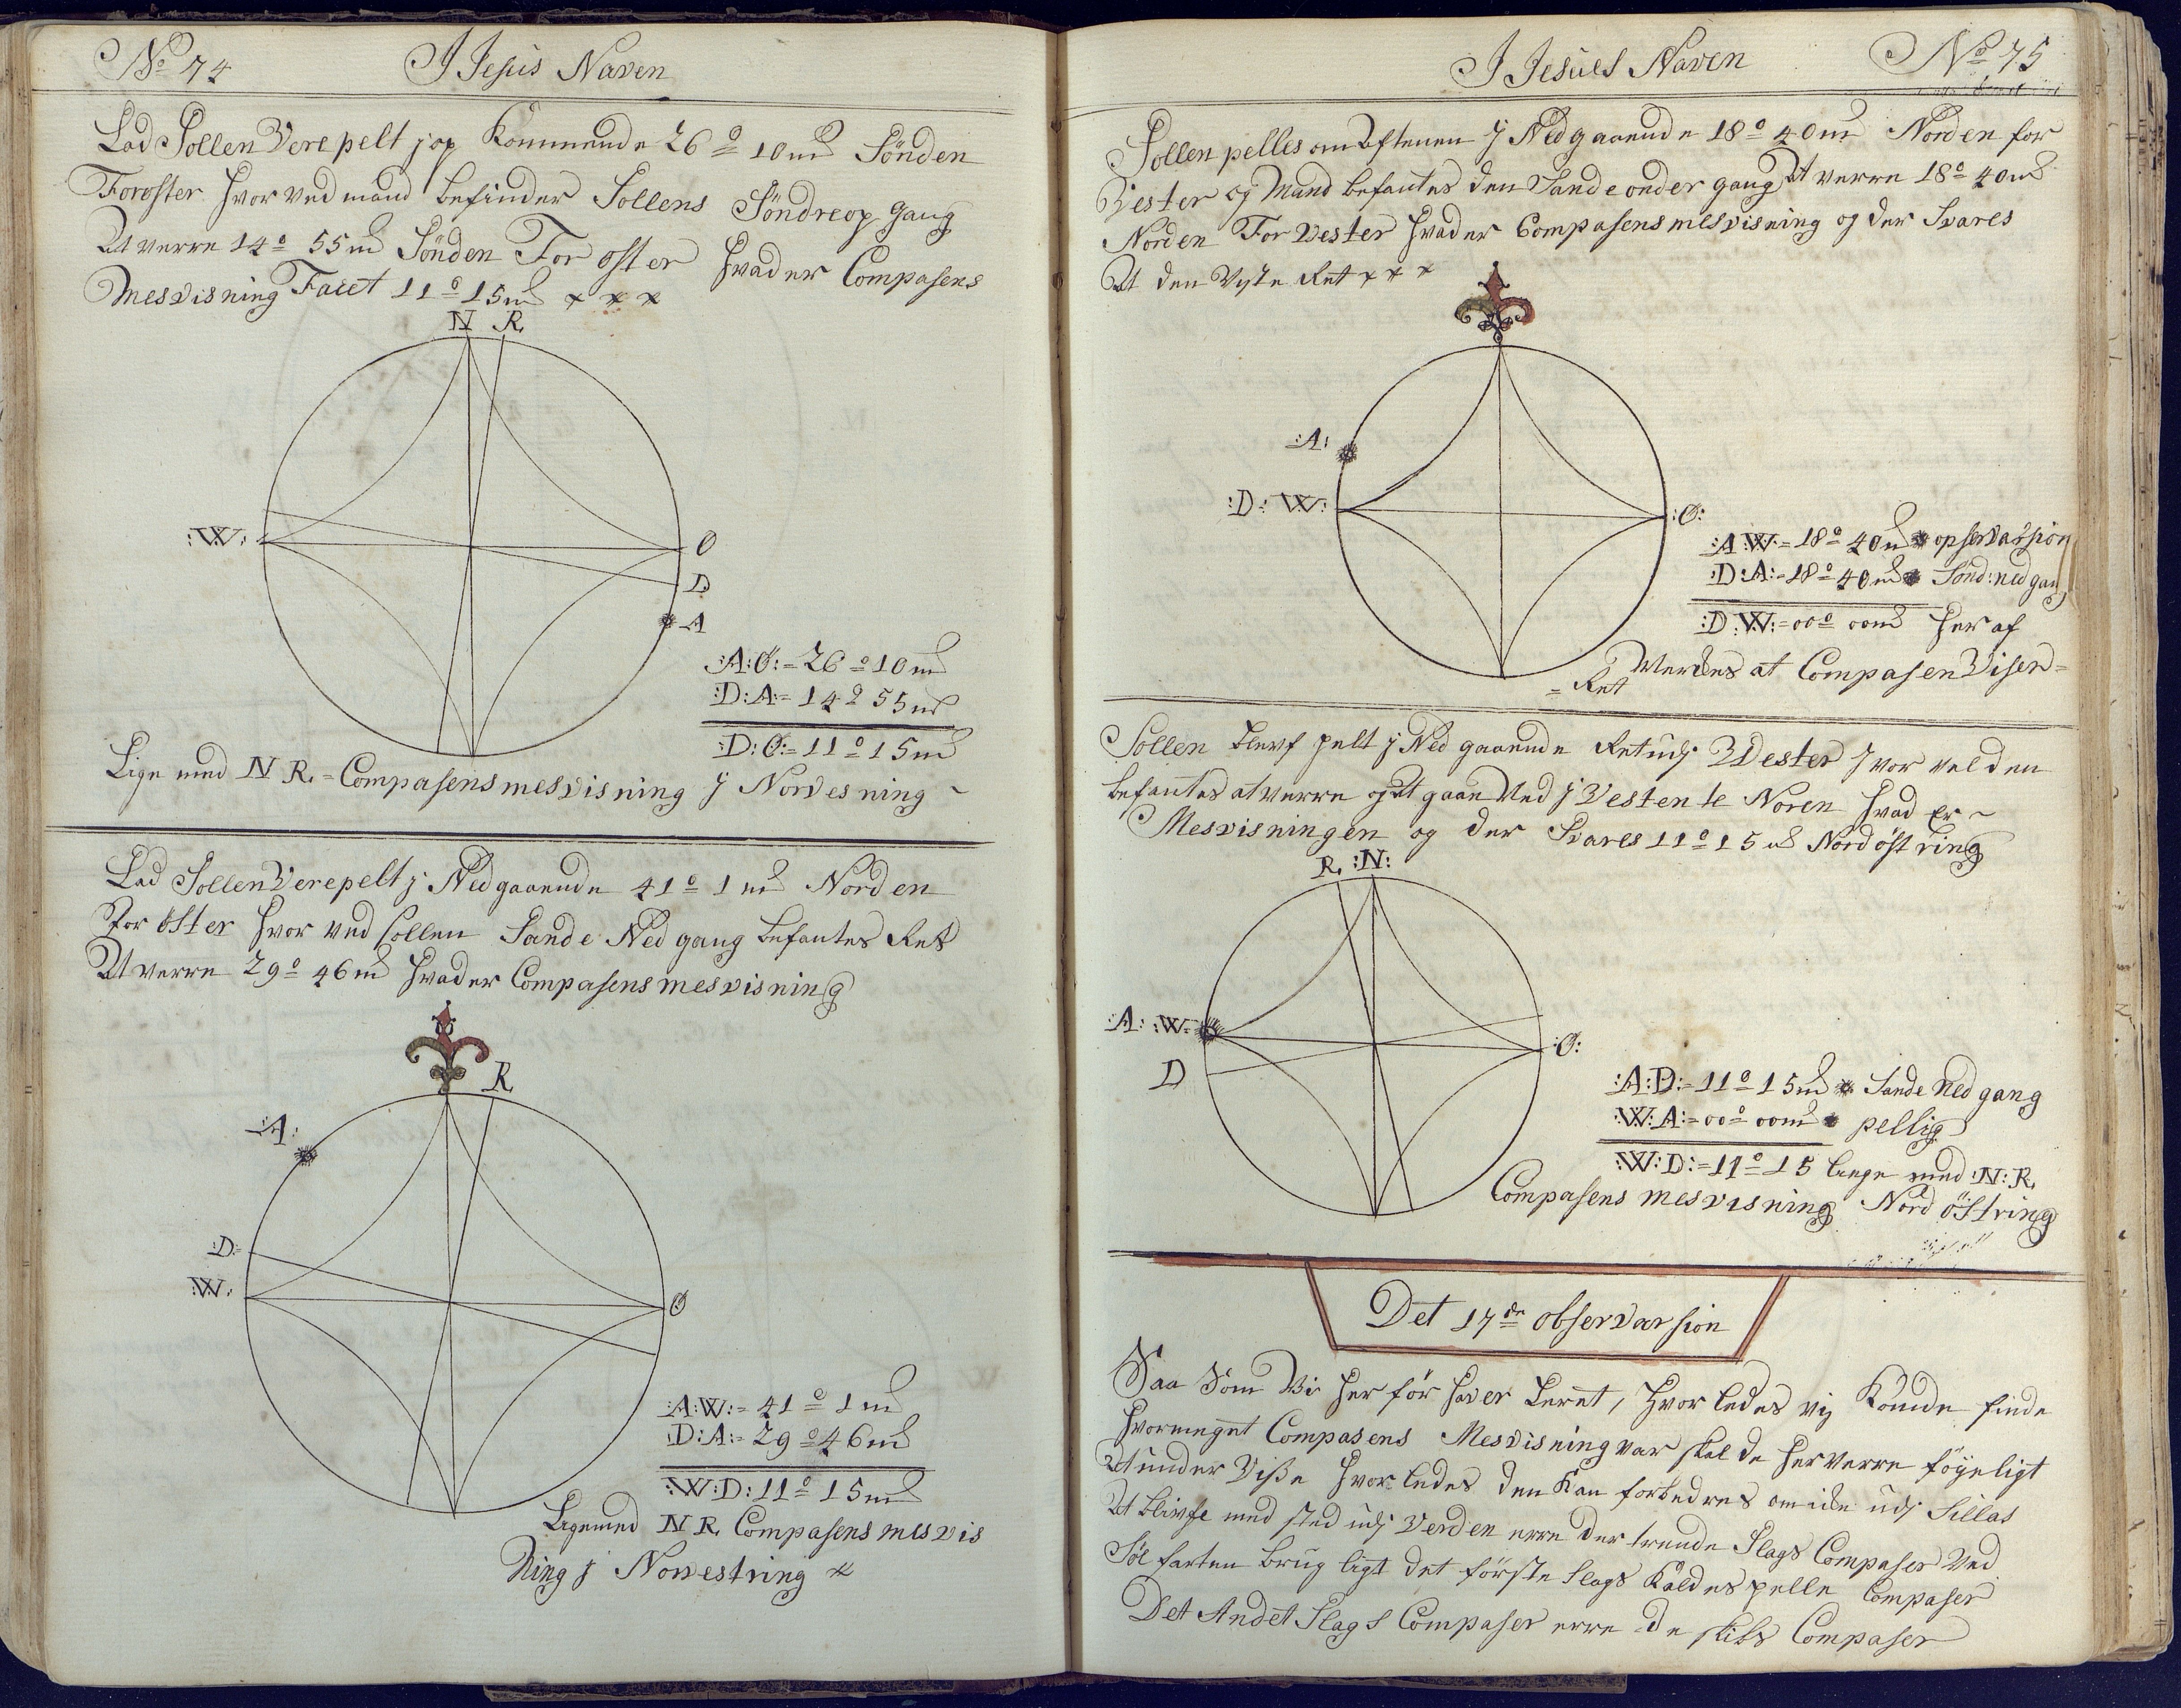 No 74
I Jesus Naven
Lad Sollen Vere pelt j op Kommende 26° 10 m Sönden
Foroster hvor ved mand befinder Sollens Söndre op gang
At verre 14° 55 m Sönden For oster hvad er Compasens
Mesvisning Facet 11° 15 m × × ×
N R
:W:
O
D
A
:A:O:= 26° 10 m
:D:A:= 14° 55 m
:D:O:= 11° 15 m
Lige med N R.= Compasens mesvisning j Norvesning ~
Lad Sollen Vere pelt j Nedgaaende 41° 1 m Norden
For öster hvor ved sollen Sande Ned gang befantes Ret
At verre 29° 46 m hvad er Compasens mesvisning
R
:A:
:D:
:W:
O
:A:W:= 41° 1 m
:D:A:= 29° 46 m
:W:D: 11° 15 m
Ligemed N R. Compasens mesvis
Ning j Norvestring ×
I Jesues Naven
No 75
Sollen pelles om Aftenen j Nedgaaende 18° 40 m Norden for
Vester og Mand befantes den Sande onder gang At verre 18° 40 m
Norden For Vester hvad er Compasens mesvisning og der Svares
At den Vyste Ret × × ×
:A:
:D: W:
:O:
:A:W:= 18° 40 m opservassion
:D:A:= 18° 40 m Sond: ned gang
:D:W:= 00° 00 m her af
Merckes at Compasen Viser =
= Ret
Sollen blevf pelt j Ned gaaende Ret udj Wester hvor vel den
befantes at verre og At gaae Ned j Vesten te Noren hvad Er ~
Mesvisningen og der Svares 11° 15 m Nord östring
R. :N:
:A: :W:
D
:O:
:A:D:= 11° 15 m Sande Ned gang
:W:A:= 00° 00 m pellig
:W:D:= 11° 15 lige med :N:R.
Compasens mesvisning Nord östring
Det 17de observarsion
Saa Som Vi her för haver Lernt, hvor ledes vij Konde finde
hvormeget Compasens Mesvisning var skal de her verre föyeligt
At under Visse hvor ledes den Kan forbedres om icke udj Sillas
At blivfe med sted udj Verden erre der trende Slags Compaser Ved
Söe farten brug ligt det förste slags Kaldes pelle Compaser
Det Andet Slags Compaser erre de skibs Compaser